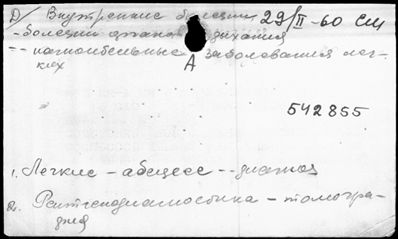 D/ Внутренние болезни 29/II-60 СМ
- болезни органов дыхания
-- нагноительные заболевания лег-
ких А
542855
1. Легкие - абсцесс -- диагноз
2. Рентгенодиагностика - томогра-
фия